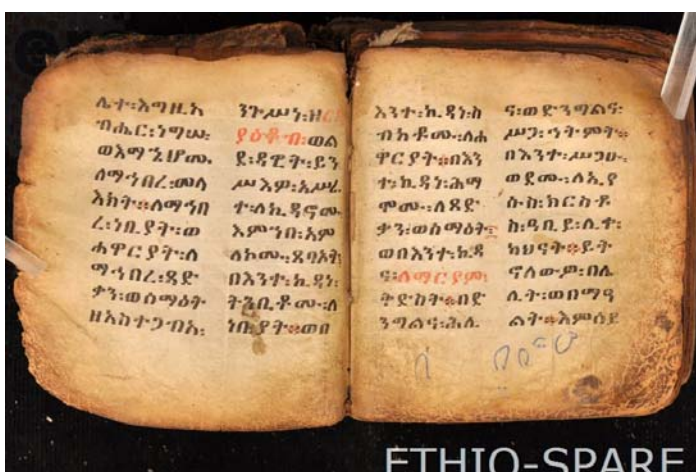 ሌተ፡እግዚአ
ብሔር፡ነግሡ፡
ወእማኄሆሙ
ለማኅበረ፡መላ
እክት፡ለማኅበ
ረ፡ነቢያት፡ወ
ሐዋርያት፡ለ
ማኅበረ፡ጻድ
ቃን፡ወሰማዕት
ዘአስተጋብአ፡
ንጉሥነ፡ዘር፡
ያዕቆብ፡ወል
ደ፡ዳዊት፡ይን
ሣእዎ፡አሥሬ
ተ፡ለኪዳኖሙ
እምኀበ፡አም
ላኮሙ፡ጸባኦት፡
በእንተ፡ኪዳነ፡
ትንቢቶሙ፡ለ
ነቢያት።ወበ
እንተ፡ኪዳነ፡ስ
ብከቶሙ፡ለሐ
ዋርያት።በእን
ተ፡ኪዳነ፡ሕማ
ሞሙ፡ለጻድ
ቃን፡ወሰማዕት፡
ወበእንተ፡ኪዳ
ና፡ለማርያም፡
ቅድስት።በድ
ንግልና፡ሕሊ
ና፡ወድንግልና፡
ሥጋ፡ኅትምት።
በእንተ፡ሥጋሁ፡
ወደሙ፡ለኢየ
ሱስ፡ክርስቶ
ስ፡ዓቢይ፡ሊቀ፡
ካህናት።ይት
ኖለውዎ፡በሌ
ሊት፡ወበማዓ
ልት።እምሰይ
ETHIO-SPARE